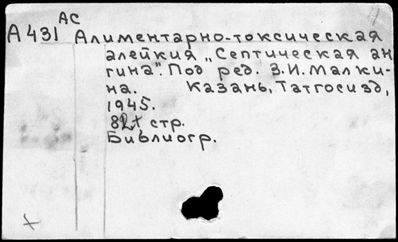 АС
А431 Алиментарно-токсическая
алейкия „Септическая ан
гина". Под ред. З.И. Малки-
на. Казань, Татгосизд,
1945.
стр.
Библиогр.